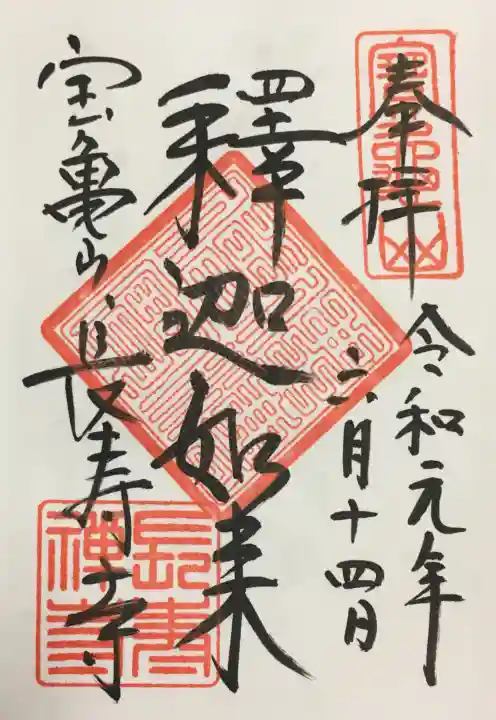 奉拝
令和元年
六月十四日
釋迦如来
宝亀山長寿寺
長壽禅寺